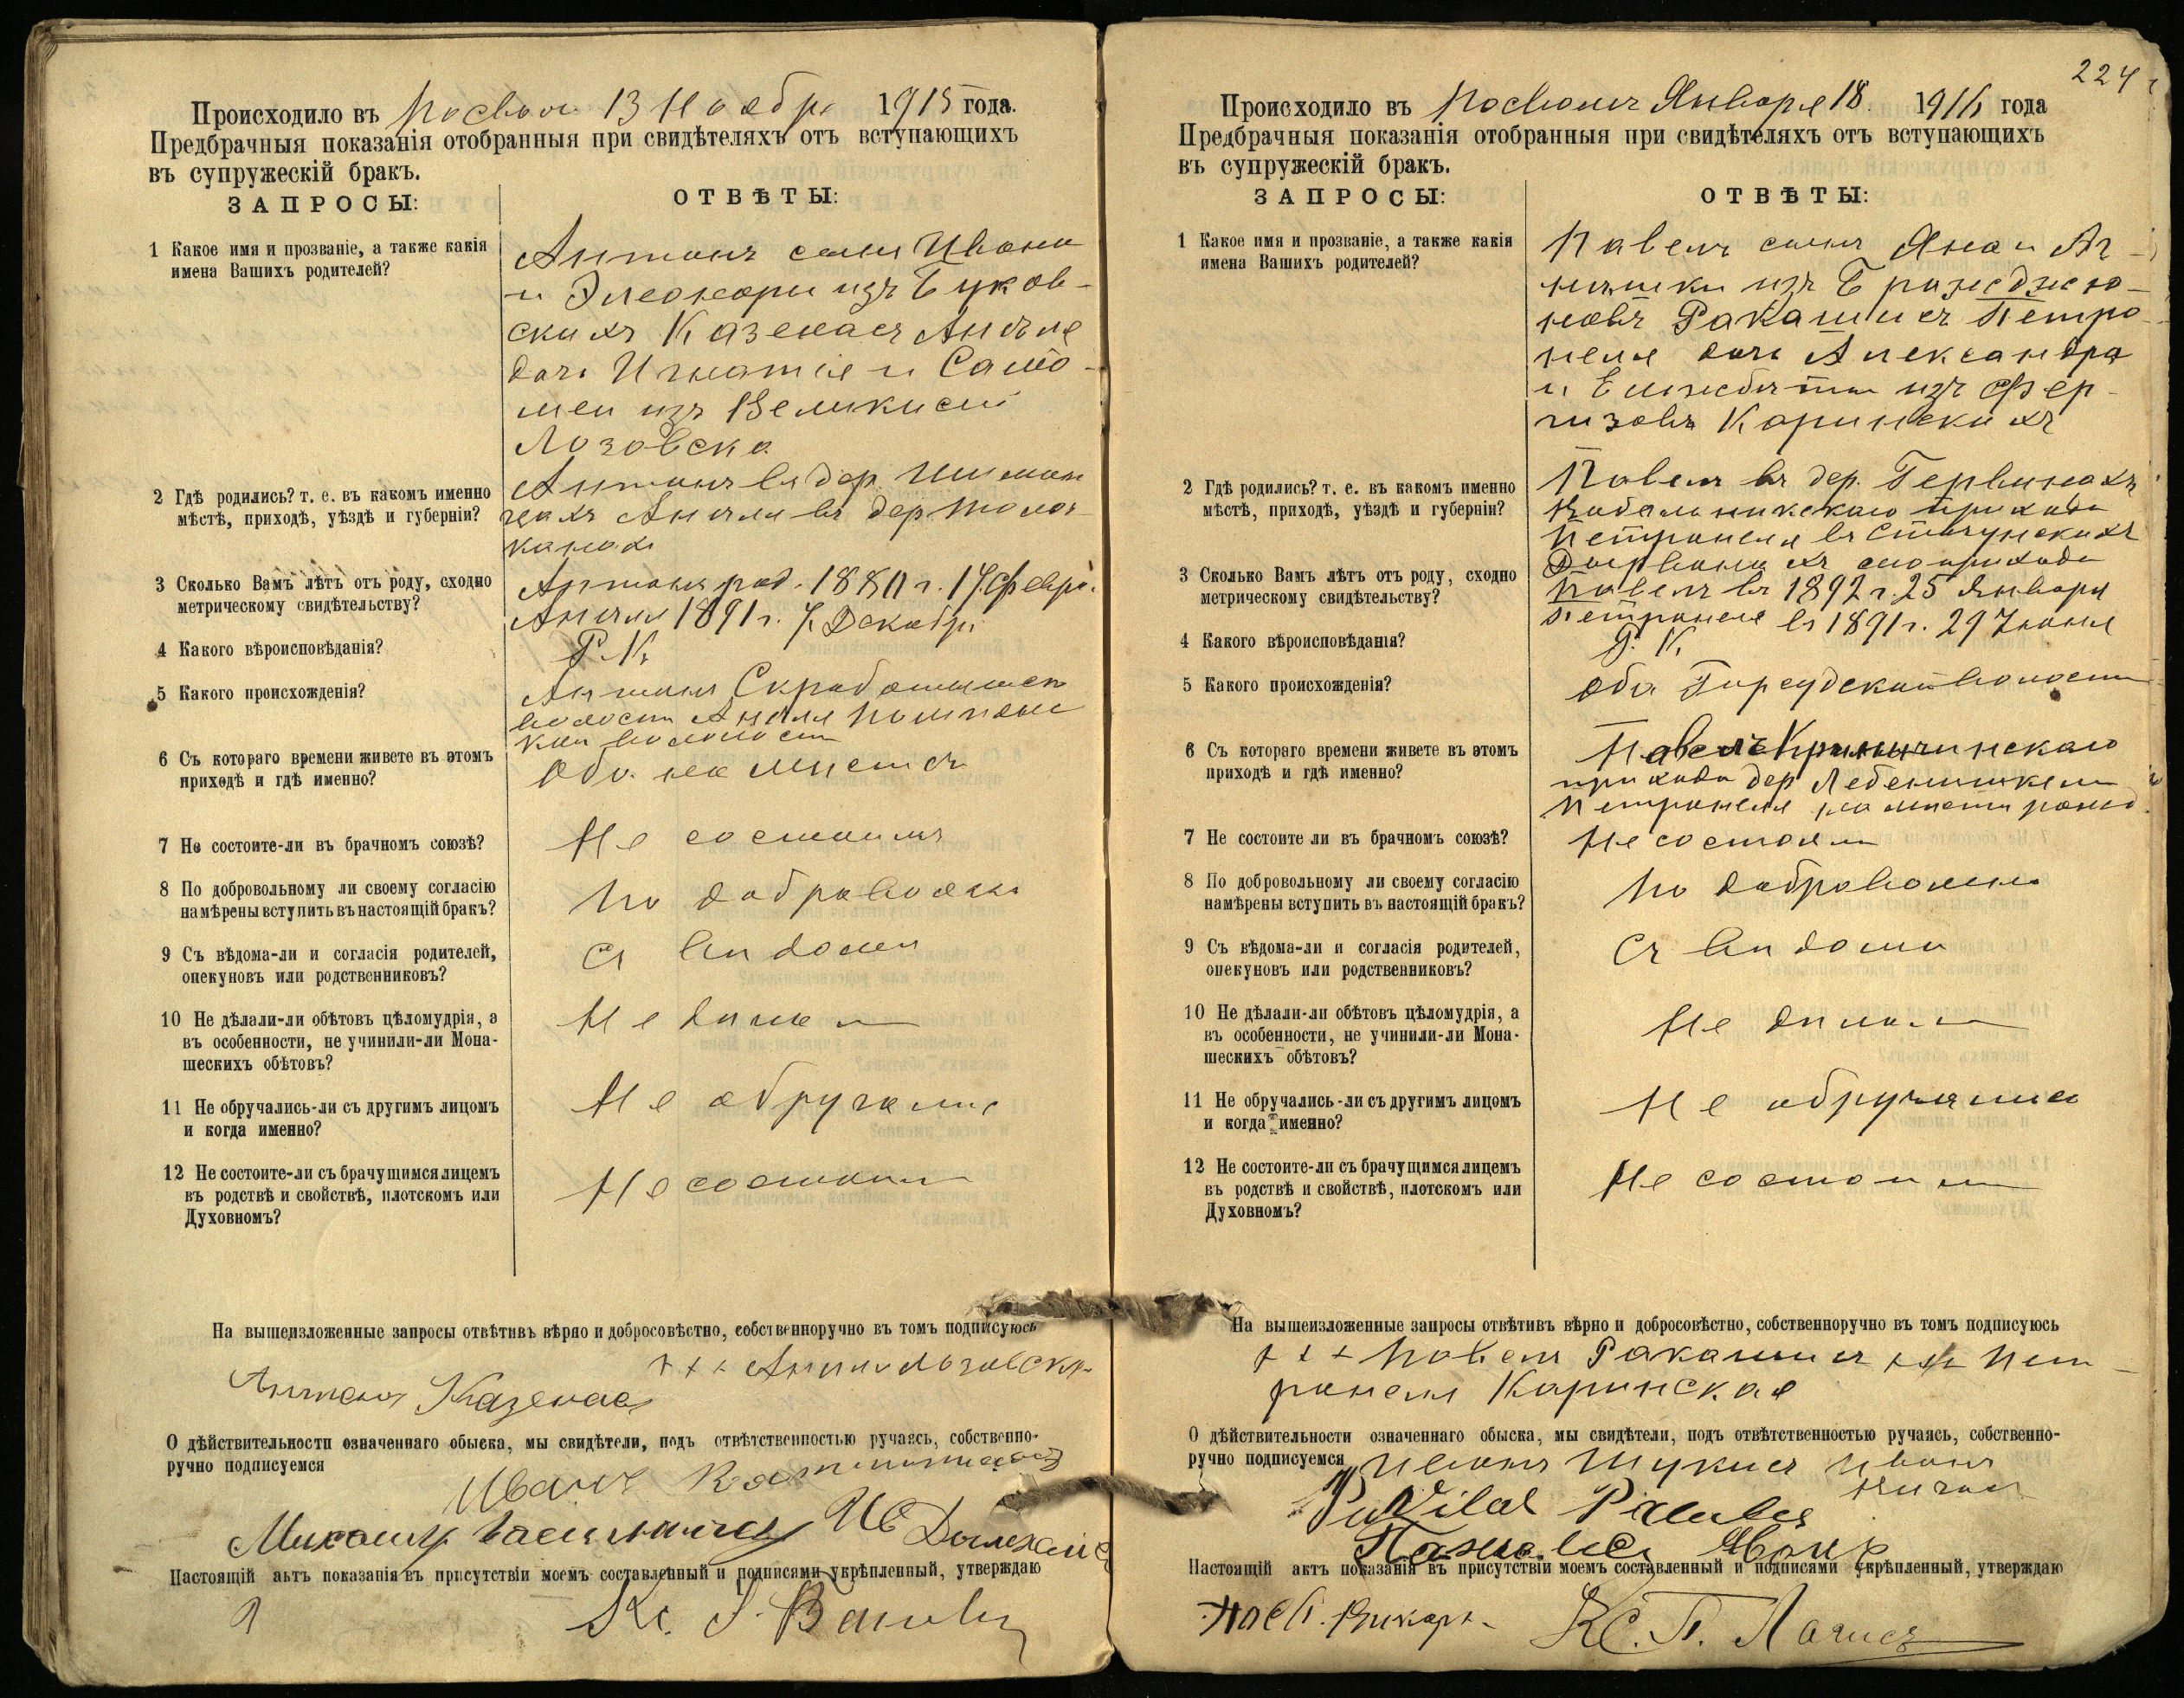 Происходило въ Посволи 13 Ноября 1915 года.
Предбрачныя показанія отобранныя при свидѣтеляхъ отъ вступающихъ
въ супружескій бракъ.
ЗАПРОСЫ:
ОТВѢТЫ:
1 Какое имя и прозваніе, а также какія
имена Вашихъ родителей?
Антонъ сынъ Ивана
и Элеоноры изъ Буков-
скихъ Казенасъ Анеля
дочь Игнатія и Сало-
меи изъ
Лозовска
2 Гдѣ родились? т. е. въ какомъ именно
мѣстѣ, приходѣ, уѣздѣ и губерніи?
Антонъ въ дер.
Анеля въ дер.
3 Сколько Вамъ лѣтъ отъ роду, сходно
метрическому свидѣтельству?
Антонъ род. г. 17 Февр.
Анеля 1891 г. 7 Декабря
4 Какого вѣроисповѣданія?
Р. К.
5 Какого происхожденія?
Антонъ
волости Анеля
волости
6 Съ котораго времени живете въ этомъ
приходѣ и гдѣ именно?
Оба на мѣстѣ
7 Не состоите-ли въ брачномъ союзѣ?
Не состоимъ
8 По добровольному ли своему согласію
намѣрены вступить въ настоящій бракъ?
По добровольн
9 Съ вѣдома-ли и согласія родителей,
опекуновъ или родственниковъ?
Съ вѣдома
10 Не дѣлали-ли обѣтовъ цѣломудрія, а
въ особенности, не учинили-ли Мона-
шескихъ обѣтовъ?
Не дѣлали
11 Не обручались-ли съ другимъ лицомъ
и когда именно?
Не обручались
12 Не состоите-ли съ брачущимся лицемъ
въ родствѣ и свойствѣ, плотскомъ или
Духовномъ?
Не состоимъ
На вышеизложенные запросы отвѣтивъ вѣрно и добросовѣстно, собственноручно въ томъ подписуюсь
+ + + Анеля Лозовска
Антонъ Казенас
О дѣйствительности означеннаго обыска, мы свидѣтели, подъ отвѣтственностью ручаясь, собственно-
ручно подписуемся
Иванъ
Настоящій актъ показанія въ присутствіи моемъ составленный и подписями укрѣпленный, утверждаю
Кс.
224
Происходило въ Посволи Января 18 1916 года
Предбрачныя показанія отобранныя при свидѣтеляхъ отъ вступающихъ
въ супружескій бракъ.
ЗАПРОСЫ:
ОТВѢТЫ:
1 Какое имя и прозваніе, а также какія
имена Вашихъ родителей?
Павелъ сынъ Яна и Аг-
нѣшки изъ Бражджю-
новъ Ракашисъ Петро-
неля дочь Александра
и Елисбѣты изъ Фер-
гизовъ Каринскихъ
2 Гдѣ родились? т. е. въ какомъ именно
мѣстѣ, приходѣ, уѣздѣ и губерніи?
Павелъ въ дер. Гервинахъ
прихода
Петронеля въ
прихода
3 Сколько Вамъ лѣтъ отъ роду, сходно
метрическому свидѣтельству?
Павелъ въ 1892 г. 25 Января
Петронеля въ 1891 г. 29 Іюня
4 Какого вѣроисповѣданія?
Р. К.
5 Какого происхожденія?
Оба Гирсудской волости
6 Съ котораго времени живете въ этомъ
приходѣ и гдѣ именно?
Павелъ Криничинскаго
прихода дер.
Петронеля на мѣстѣ рожд.
7 Не состоите ли въ брачномъ союзѣ?
Не состоимъ
8 По добровольному ли своему согласію
намѣрены вступить въ настоящій бракъ?
По добровольно
9 Съ вѣдома-ли и согласія родителей,
опекуновъ или родственниковъ?
Съ вѣдома
10 Не дѣлали-ли обѣтовъ цѣломудрія, а
въ особенности, не учинили-ли Мона-
шескихъ обѣтовъ?
Не дѣлали
11 Не обручались-ли съ другимъ лицомъ
и когда именно?
Не обручались
12 Не состоите-ли съ брачущимся лицемъ
въ родствѣ и свойствѣ, плотскомъ или
Духовномъ?
Не состоимъ
На вышеизложенные запросы отвѣтивъ вѣрно и добросовѣстно, собственноручно въ томъ подписуюсь
+ + + Павелъ Ракашисъ + + + Пет-
ронеля Каринская
О дѣйствительности означеннаго обыска, мы свидѣтели, подъ отвѣтственностью ручаясь, собственно-
ручно подписуемся Иванъ Шукисъ Иванъ
Настоящій актъ показанія въ присутствіи моемъ составленный и подписями укрѣпленный, утверждаю
Викарн. Кс. П.